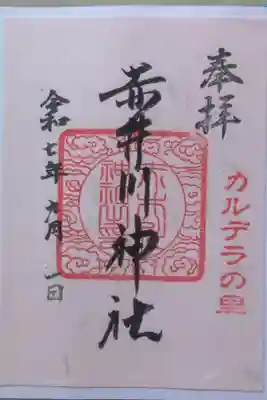 奉拝
カルデラの里
赤井川神社
令和七年 十月 一日